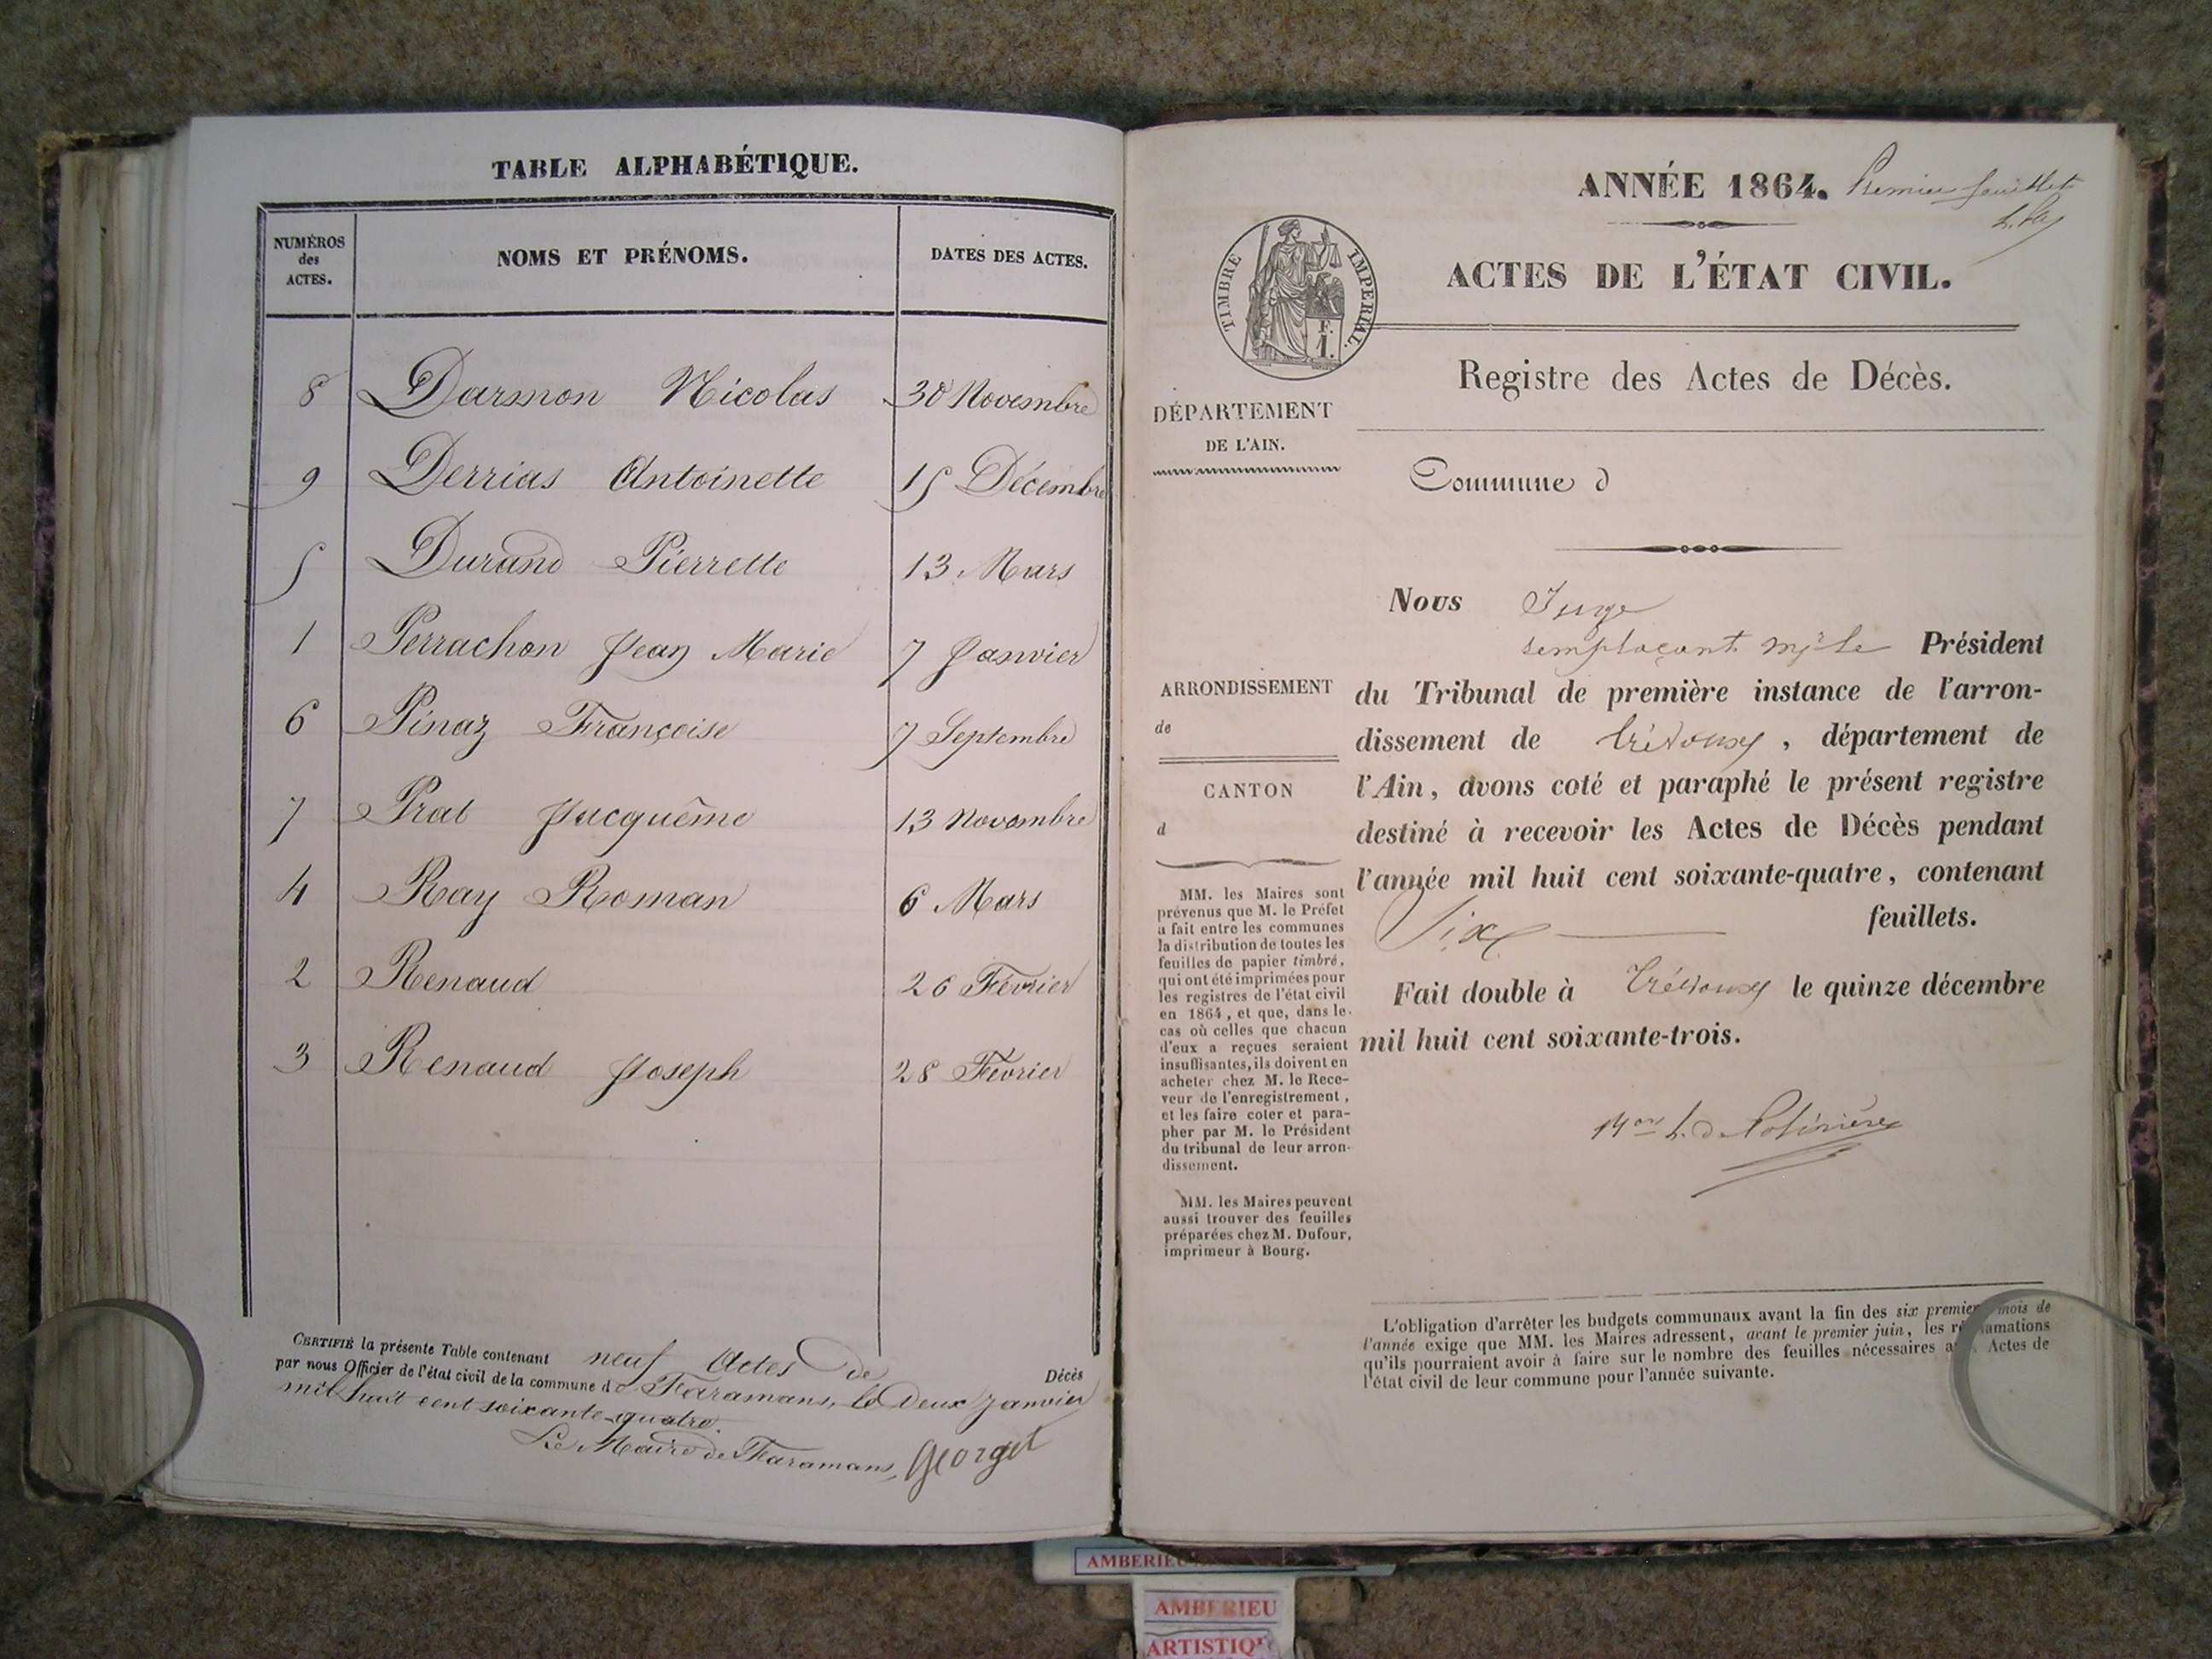 TABLE ALPHABÉTIQUE.
NUMÉROS des ACTES.
NOMS ET PRÉNOMS.
DATES DES ACTES.
8 Darmon Nicolas 30 Novembre
9 Derrias Antoinette 15 Décembre
5 Durand Pierrette 13 Mars
1 Perrachon Jean Marie 7 Janvier
6 Pinaz Françoise 7 Septembre
7 Prat Jacquême 13 Novembre
4 Ray Roman 6 Mars
2 Renaud 26 Février
3 Renaud Joseph 28 Février
CERTIFIÉ la présente Table contenant neuf Actes de Décès
par nous Officier de l'état civil de la commune de Faramans, le Deux Janvier
mil huit cent soixante-quatre.
Le Maire de Faramans, Georget
ANNÉE 1864. Premier feuillet
TIMBRE IMPERIAL.
F.
1.
ACTES DE L'ÉTAT CIVIL.
Registre des Actes de Décès.
DÉPARTEMENT
DE L'AIN.
Commune d
Nous Juge
remplaçant Mr le Président
du Tribunal de première instance de l'arron-
dissement de Trévoux, département de
l'Ain, avons coté et paraphé le présent registre
destiné à recevoir les Actes de Décès pendant
l'année mil huit cent soixante-quatre, contenant
Six feuillets.
Fait double à Trévoux le quinze décembre
mil huit cent soixante-trois.
ARRONDISSEMENT
de
CANTON
d
MM. les Maires sont
prévenus que M. le Préfet
a fait entre les communes
la distribution de toutes les
feuilles de papier timbré,
qui ont été imprimées pour
les registres de l'état civil
en 1864, et que, dans le
cas où celles que chacun
d'eux a reçues seraient
insuffisantes, ils doivent en
acheter chez M. le Rece-
veur de l'enregistrement,
et les faire coter et para-
pher par M. le Président
du tribunal de leur arron-
dissement.
MM. les Maires peuvent
aussi trouver des feuilles
préparées chez M. Dufour,
imprimeur à Bourg.
L'obligation d'arrêter les budgets communaux avant la fin des six premiers mois de
l'année exige que MM. les Maires adressent, avant le premier juin, les réclamations
qu'ils pourraient avoir à faire sur le nombre des feuilles nécessaires aux Actes de
l'état civil de leur commune pour l'année suivante.
AMBERIEU
AMBERIEU
ARTISTIQ